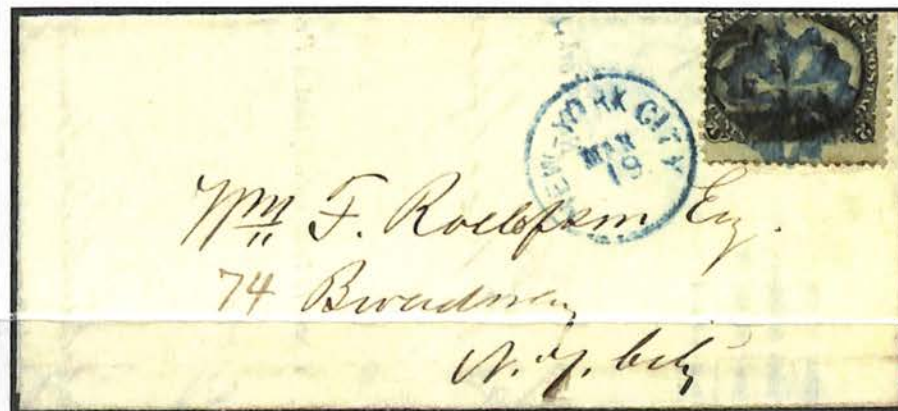 NEW-YORK CITY
MAR
19
Wm F. Esq.
74 Broadway
N. Y. City